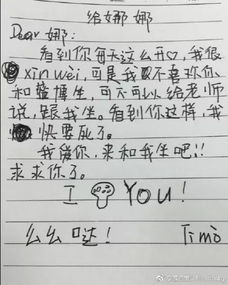 给娜娜
Dear 娜:
看到你每天这么开♡,我很
xin wei,可是我不喜欢你
和蓝博坐,可不可以给老师
说,跟我坐。看到你这样,我
快要死了。
我爱你,来和我坐吧!!
求求你了。
I YOU!
么么哒! Timo